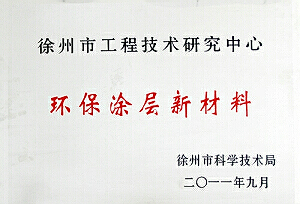 徐州市工程技术研究中心
环保涂层新材料
徐州市科学技术局
二〇一一年九月